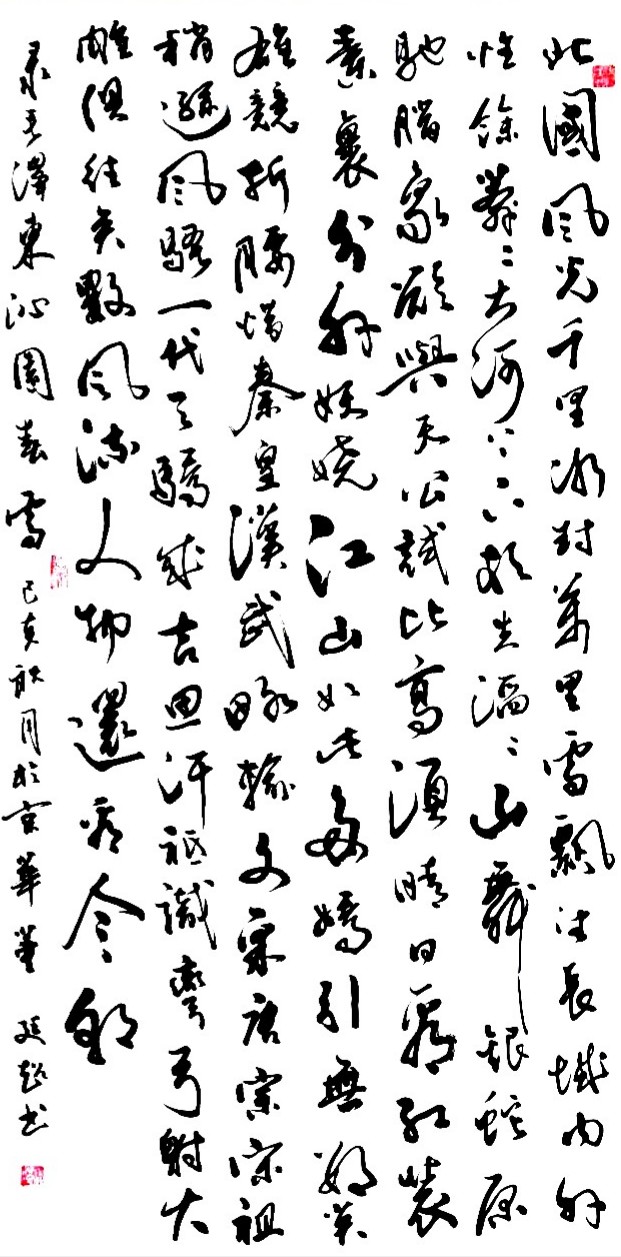 北國風光千里冰封萬里雪飄望長城內外
惟餘莽〻大河上下頓失滔〻山舞銀蛇原
馳臘象欲與天公試比高須晴日看紅裝
素裹分外妖嬈江山如此多嬌引無數英
雄競折腰惜秦皇漢武略輸文采唐宗宋祖
稍遜風騷一代天驕成吉思汗祗識彎弓射大
雕俱往矣數風流人物還看今朝
录毛澤東沁園春雪 己亥秋月於京華董廷超书